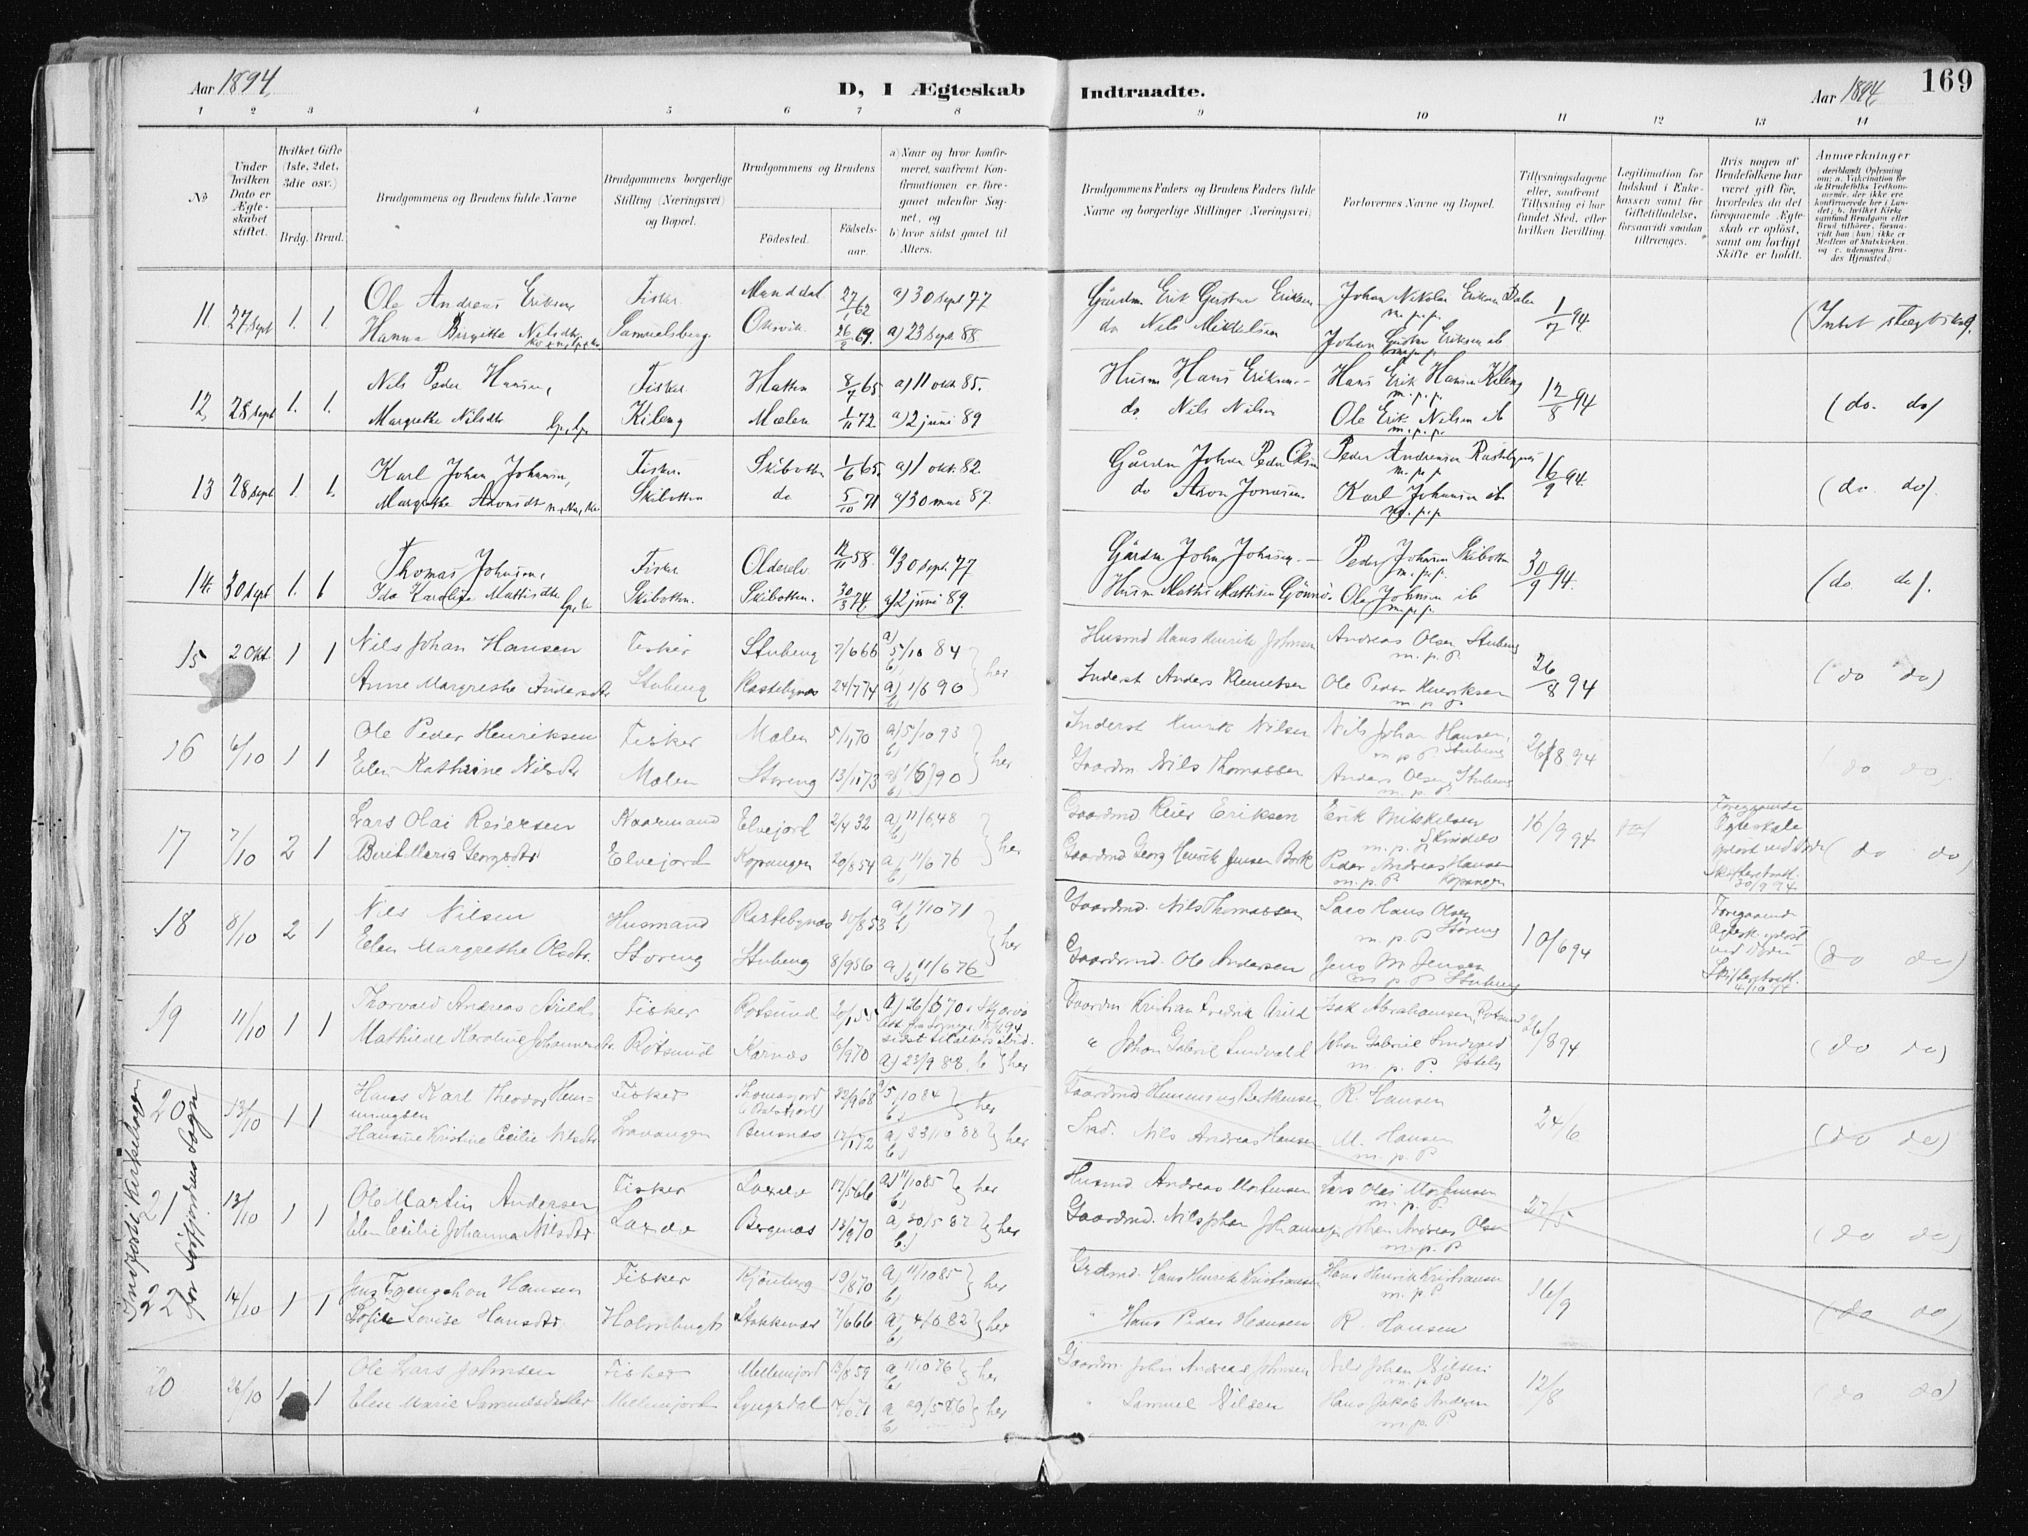 Aar 1894
D, I Ægteskab Indtraadte.
Aar 1894
169
1 2 3 4 5 6 7 8 9 10 11 12 13 14
No
Under hvilken Dato er Ægteskabet stiftet.
Hvilket Gifte (1ste, 2det, 3die osv.)
Brdg. Brud.
Brudgommens og Brudens fulde Navne
Brudgommens borgerlige Stilling (Næringsvei) og Bopæl.
Brudgommens og Brudens
Fødested. Fødselsaar.
a) Naar og hvor konfirmeret, saafremt Konfirmationen er foregaaet udenfor Sognet, og
b) hvor sidst gaaet til Alters.
Brudgommens Faders og Brudens Faders fulde Navne og borgerlige Stillinger (Næringsvei)
Forlovernes Navne og Bopæl.
Tillysningsdagene eller, saafremt Tillysning ei har fundet Sted, efter hvilken Bevilling.
Legitimation for Indskud i Enkekassen samt for Giftetilladelse, forsaavidt saadan tiltrænges.
Hvis nogen af Brudefolkene har været gift før, hvorledes da det foregaaende Ægteskab er opløst, samt om lovligt Skifte er holdt.
Anmærkninger
11. 27 Sept 1. 1. Ole Andreas Eriksen Fisker Manddal 27/1 62 a) 30 Sept 77 Gårdm Erik Gustav Eriksen Johan Nikolai Eriksen m.p.p. 1/7 94
Hanna Birgitte Nilsdtr Samuelsberg Oksvik 26/2 69. a) 23 Sept 88 do Nils Mikkelsen Johan Gustav Eriksen ib m.p.p.
12, 28 Sept 1. 1. Nils Peder Hansen, Fisker Hatten 8/7 65 a) 11 okt 85. Husm Hans Eriksen Hans Erik Hansen Kileng m.p.p. 12/8 94 (do. do)
Margrethe Nilsdtr Kileng Mælen 1/11 72 a) 2 juni 89 do. Nils Nilsen Ole Erik Nilsen ib m.p.p.
13 28 Sept 1. 1. Karl Johan Johansen, Fisker. Skibotten 1/6 65 a) 1 okt. 82. Gårdm Johan Peder Olsen Peder Andreasen Rastebynes m.p.p. 16/9 94. (do do).
Margrethe Aronsdtr Skibotten do 5/10 71 a) 30 87. do Aron Jonasen. Karl Johansen ib m.p.p.
14. 30 Sept 1. 1 Thomas Johnsen, Fisker Olderelv 12/11 58. a) 30 Sept. 77 Gårdm John Johnsen. Peder Johnsen Skibotten m.p.p. 30/9 94. (do do).
Ida Karoline Mattisdtr Skibotten. Skibotten. 30/3 74. a) 2 juni 89. Husm Mathis Mathisen Ole Johnsen ib m.p.p.
15 2 Okt. 1 1 Nils Johan Hansen Fisker Stubeng 7/6 66 a) 5/10 84 b) her Husmd Hans Henrik Johnsen Andreas Olsen Stubeng m.p.P. 26/8 94 (do do)
Anne Margrethe Andersdtr Stubeng Rastebynes 24/7 74 a) 1/6 90 b) Inderst Anders Klemetsen Ole Peder Henriksen m.p.P
16 6/10 1 1 Ole Peder Henriksen Fisker Mælen 5/1 70 a) 5/10 93 b) her Inderst Henrik Nilsen Nils Johan Hansen, m.p.P Stubeng 26/8 94 do do)
Elen Kathrine Nilsdtr Mælen Storeng 13/11 73 a) 1/6 90 b) Gaardm Nils Thomassen Anders Olsen Stubeng m.p.P
17 7/10 2 1 Lars Olai Reiersen Kaarmand Elvejord 2/4 32 a) 11/6 48 b) her Gaardmd Reier Eriksen Erik Mikkelsen m.p.P 16/9 94 Foregaaende Ægteskab opløst ved Døde Skifteattest 30/9 94 (do do)
Berit Maria Georgsdtr Elvejord Kopangen 20/8 54 a) 11/6 76 Gaardmd Georg Henrik Jensen Bork Peder Andreas Hansen m.p.P Kopangen
18 8/10 2 1 Nils Nilsen Husmand Rastebynes 20/8 53 a) 1/10 71 b) her Gaardmd. Nils Thomassen Lars Hans Olsen m.p.P Storeng 10/6 94 Foregaaende Ægtesk. opløst ved Døden Skifteattest. 4/10 94 (do do)
Elen Margrethe Olsdtr. Storeng Stubeng 8/9 56 a) b) 11/6 76 Gaardmd. Ole Andersen Jens M Jensen m.p.P Stubeng
19 11/10 1 1 Thorvald Andreas Arild Fisker Rotsund 20/1 55 a) 26/6 70 i Skjervø sidst til alters ibid. Gaardm Kristian Fredrik Arild Isak Abrahamsen, Rotsund 26/8 94 (do do)
Mathilde Karoline Johannesdtr. Rotsund Karnæs 6/9 70 a) 23/9 88. b) her " Johan Gabriel Lindvald Johan Gabriel Lindvald m.p.P.
Indført i Kirkebogen for Sørfjordens Sogn
20 13/10 1 1 Hans Karl Theodor Henningsen Fisker Thomasjord i Balsfjord 22/9 68 a) 5/10 84 b) her Gaardmd Henning Berthensen R. Hansen 24/6 (do do)
Hansine Kristine Cecilie Nilsdtr Lavangen Bensnæs 17/1 72 a) 23/10 88 b) her Nils Andreas Hansen M. Hansen m.p.P
21 13/10 1 1 Ole Martin Andersen Fisker Laxelv 17/5 66 a) 11/10 85 b) her Husmd Andreas Mortensen Lars Olai Mortensen m.p.P. 27/5 (do do)
Elen Cecilie Johanna Nilsdtr. Laxelv Bergnæs 18/9 70 a) 30/5 87 b) her Gaardmd. Nils Johan Johannesen Johan Andreas Olsen m.p.P
22 14/10 1 1 Jens Hansen Fisker 19/8 70 a) 11/10 85 b) her Grdmd. Hans Henrik Kristiansen Hans Henrik Kristiansen m.p.P 16/9 (do do)
Sofie Lovise Hansdtr. Holmbugt Stokkenæs 7/6 66 a) 4/6 82 b) her " Hans Peder Hansen R. Hansen
20 26/10 1 1 Ole Lars Johnsen Fisker Mellemjord 18/8 59 a) 11/10 76 b) her Gaardm. John Andreas Johnsen Nils Johan Nilsen m.p.P 12/8 (do do)
Elen Marie Samuelsdatter Mellemjord Lyngsdal 17/10 71 a) 29/5 86 b) her " Samuel Nilsen Hans Jakob Andersen m.p.P